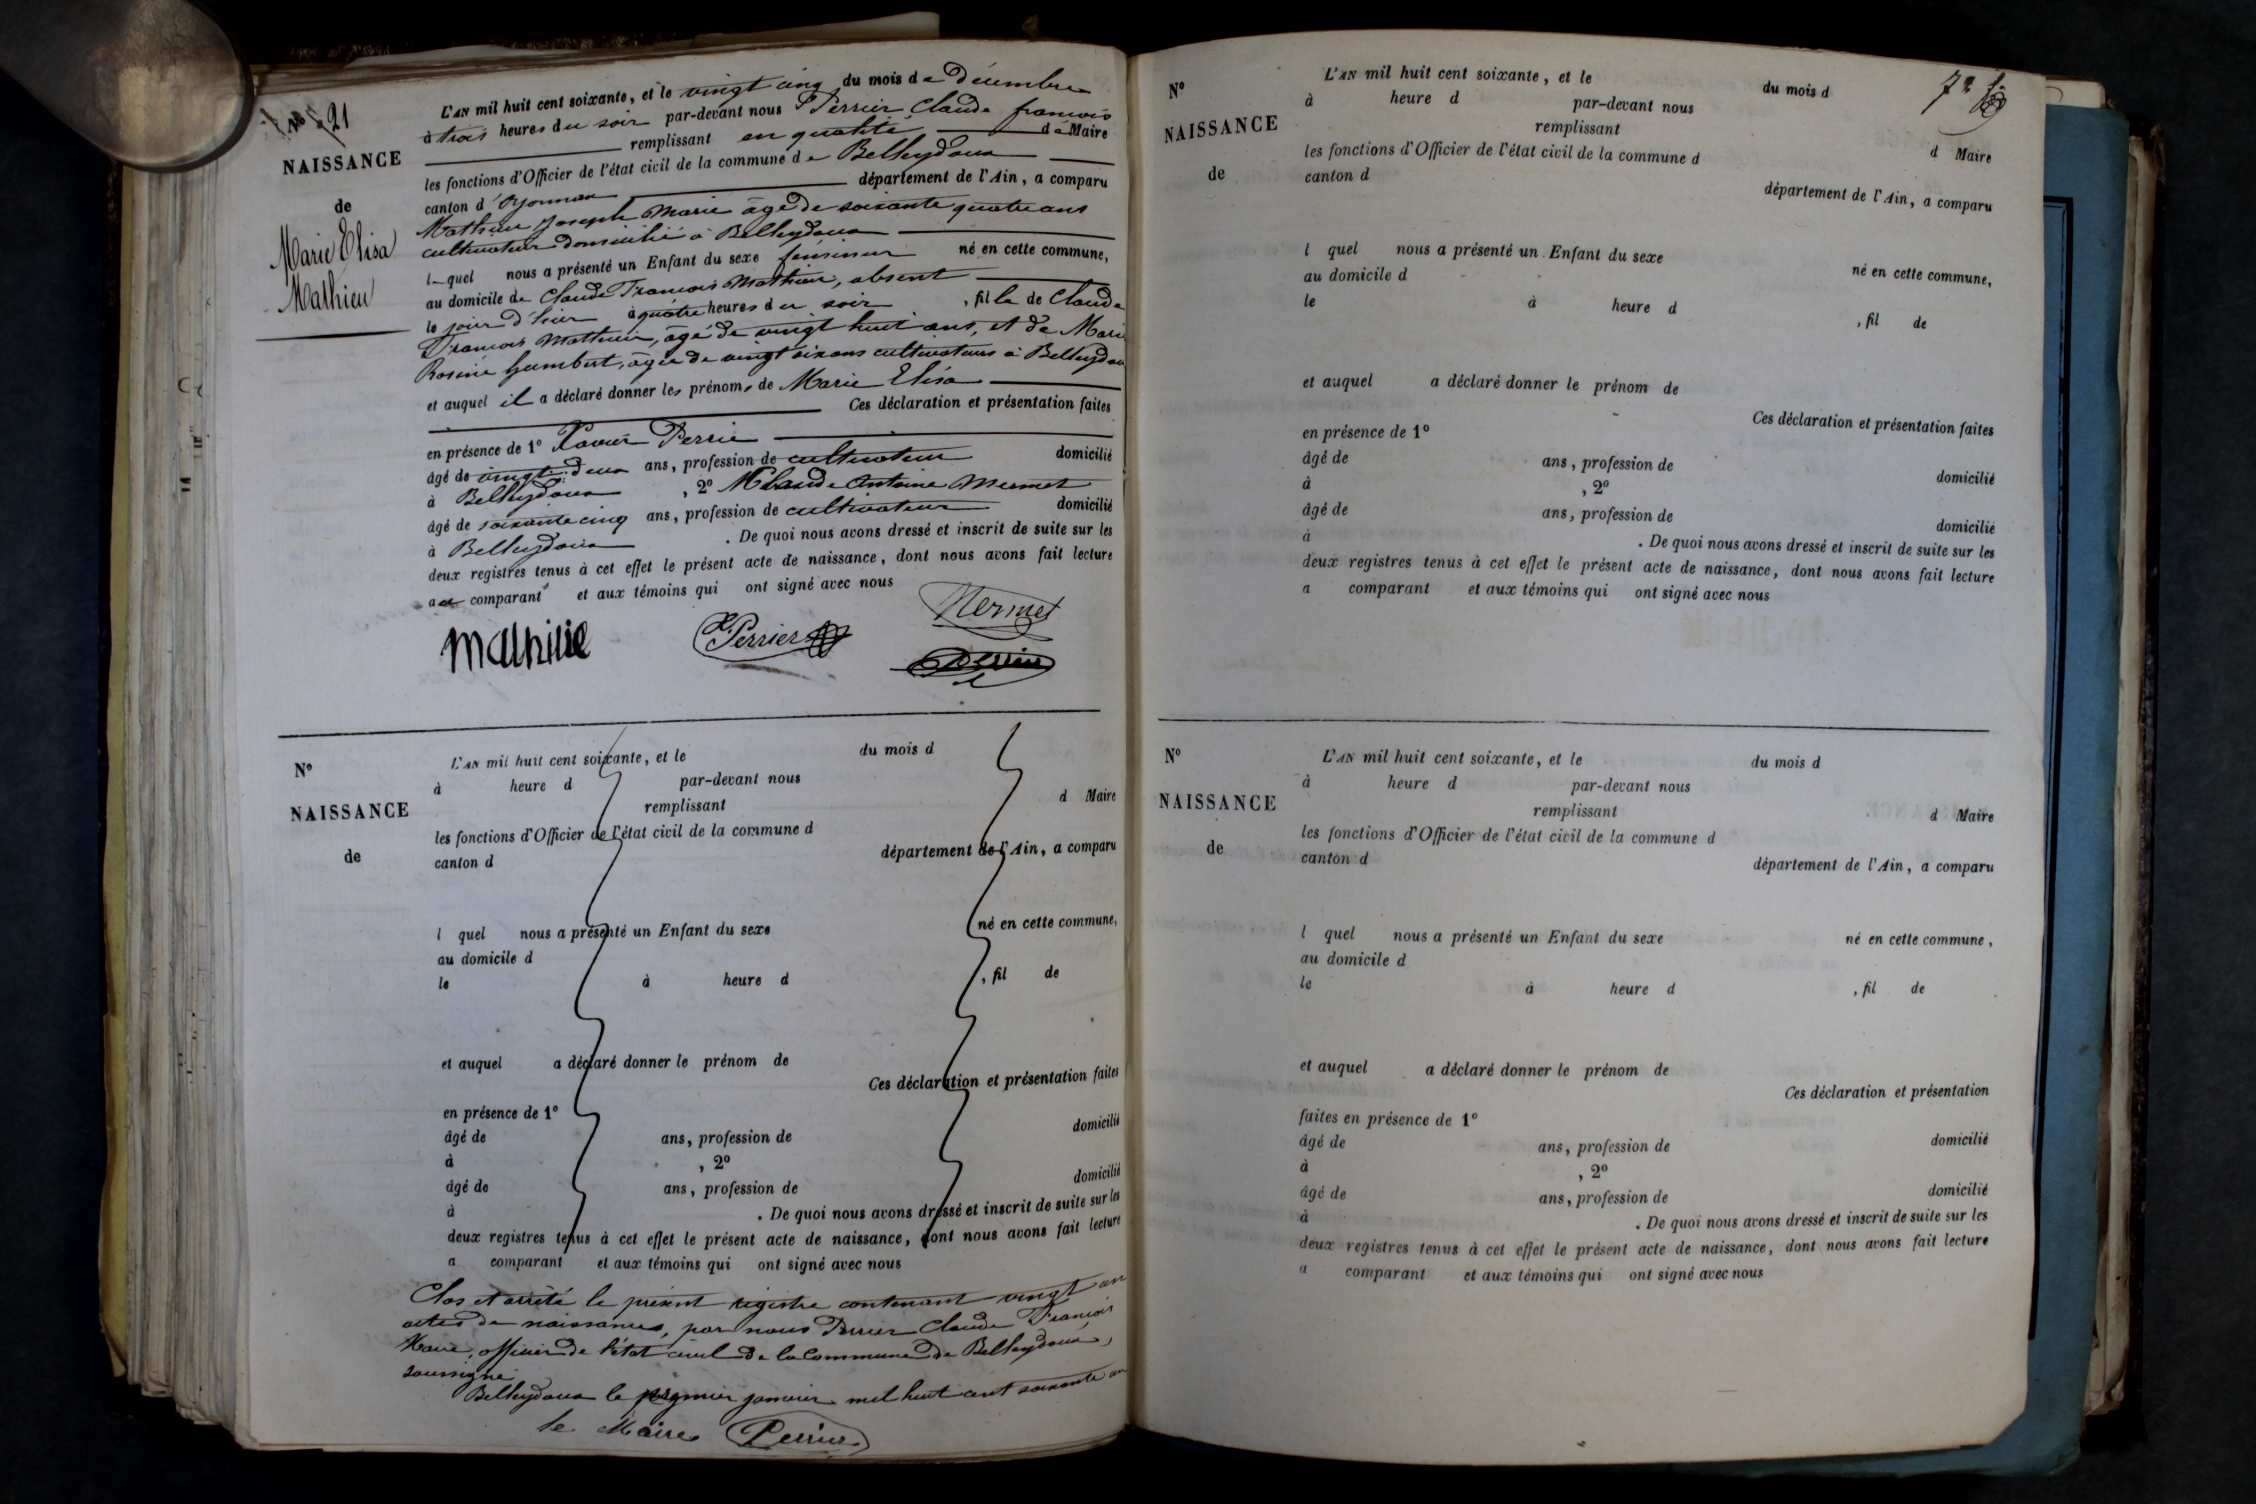 N° 21
NAISSANCE
de
Marie Elisa
Mathieu
L'AN mil huit cent soixante, et le vingt cinq du mois de décembre
à trois heures du soir par-devant nous Perrier Claude françois
remplissant en qualité de Maire
les fonctions d'Officier de l'état civil de la commune de Belleydoux
canton d'Oyonnax département de l'Ain, a comparu
Mathieu Joseph Marie âgé de soixante quatre ans
cultivateur domicilié à Belleydoux
lequel nous a présenté un Enfant du sexe féminin né en cette commune,
au domicile de Claude François Mathieu, absent
le jour d'hier à quatre heures du soir, fille de Claude
François Mathieu, âgé de vingt huit ans, et de Marie
Rosine Humbert, âgée de vingt six ans cultivateurs à Belleydoux
et auquel il a déclaré donner les prénoms de Marie Elisa
Ces déclaration et présentation faites
en présence de 1° Xavier Perrier
âgé de vingt deux ans, profession de cultivateur domicilié
à Belleydoux, 2° Claude Antoine Mermet
âgé de soixante cinq ans, profession de cultivateur domicilié
à Belleydoux. De quoi nous avons dressé et inscrit de suite sur les
deux registres tenus à cet effet le présent acte de naissance, dont nous avons fait lecture
au comparant et aux témoins qui ont signé avec nous
Mermet
Perrier
N°
NAISSANCE
de
L'AN mil huit cent soixante, et le du mois d
à heure d par-devant nous
remplissant d Maire
les fonctions d'Officier de l'état civil de la commune d
canton d département de l'Ain, a comparu
l quel nous a présenté un Enfant du sexe né en cette commune,
au domicile d
le à heure d , fil de
et auquel a déclaré donner le prénom de
Ces déclaration et présentation faites
en présence de 1°
âgé de ans, profession de domicilié
à , 2°
âgé de ans, profession de domicilié
à . De quoi nous avons dressé et inscrit de suite sur les
deux registres tenus à cet effet le présent acte de naissance, dont nous avons fait lecture
a comparant et aux témoins qui ont signé avec nous
Clos et arrêté le présent registre contenant vingt un
actes de naissances, par nous Perrier Claude François
Maire, officier de l'état civil de la Commune de Belleydoux,
soussigné
Belleydoux le premier janvier mil huit cent soixante un
le Maire Perrier
N°
NAISSANCE
de
L'AN mil huit cent soixante, et le du mois d
à heure d par-devant nous
remplissant d Maire
les fonctions d'Officier de l'état civil de la commune d
canton d département de l'Ain, a comparu
l quel nous a présenté un Enfant du sexe né en cette commune,
au domicile d
le à heure d , fil de
et auquel a déclaré donner le prénom de
Ces déclaration et présentation faites
en présence de 1°
âgé de ans, profession de domicilié
à , 2°
âgé de ans, profession de domicilié
à . De quoi nous avons dressé et inscrit de suite sur les
deux registres tenus à cet effet le présent acte de naissance, dont nous avons fait lecture
a comparant et aux témoins qui ont signé avec nous
N°
NAISSANCE
de
L'AN mil huit cent soixante, et le du mois d
à heure d par-devant nous
remplissant d Maire
les fonctions d'Officier de l'état civil de la commune d
canton d département de l'Ain, a comparu
l quel nous a présenté un Enfant du sexe né en cette commune,
au domicile d
le à heure d , fil de
et auquel a déclaré donner le prénom de
Ces déclaration et présentation
faites en présence de 1°
âgé de ans, profession de domicilié
à , 2°
âgé de ans, profession de domicilié
à . De quoi nous avons dressé et inscrit de suite sur les
deux registres tenus à cet effet le présent acte de naissance, dont nous avons fait lecture
a comparant et aux témoins qui ont signé avec nous